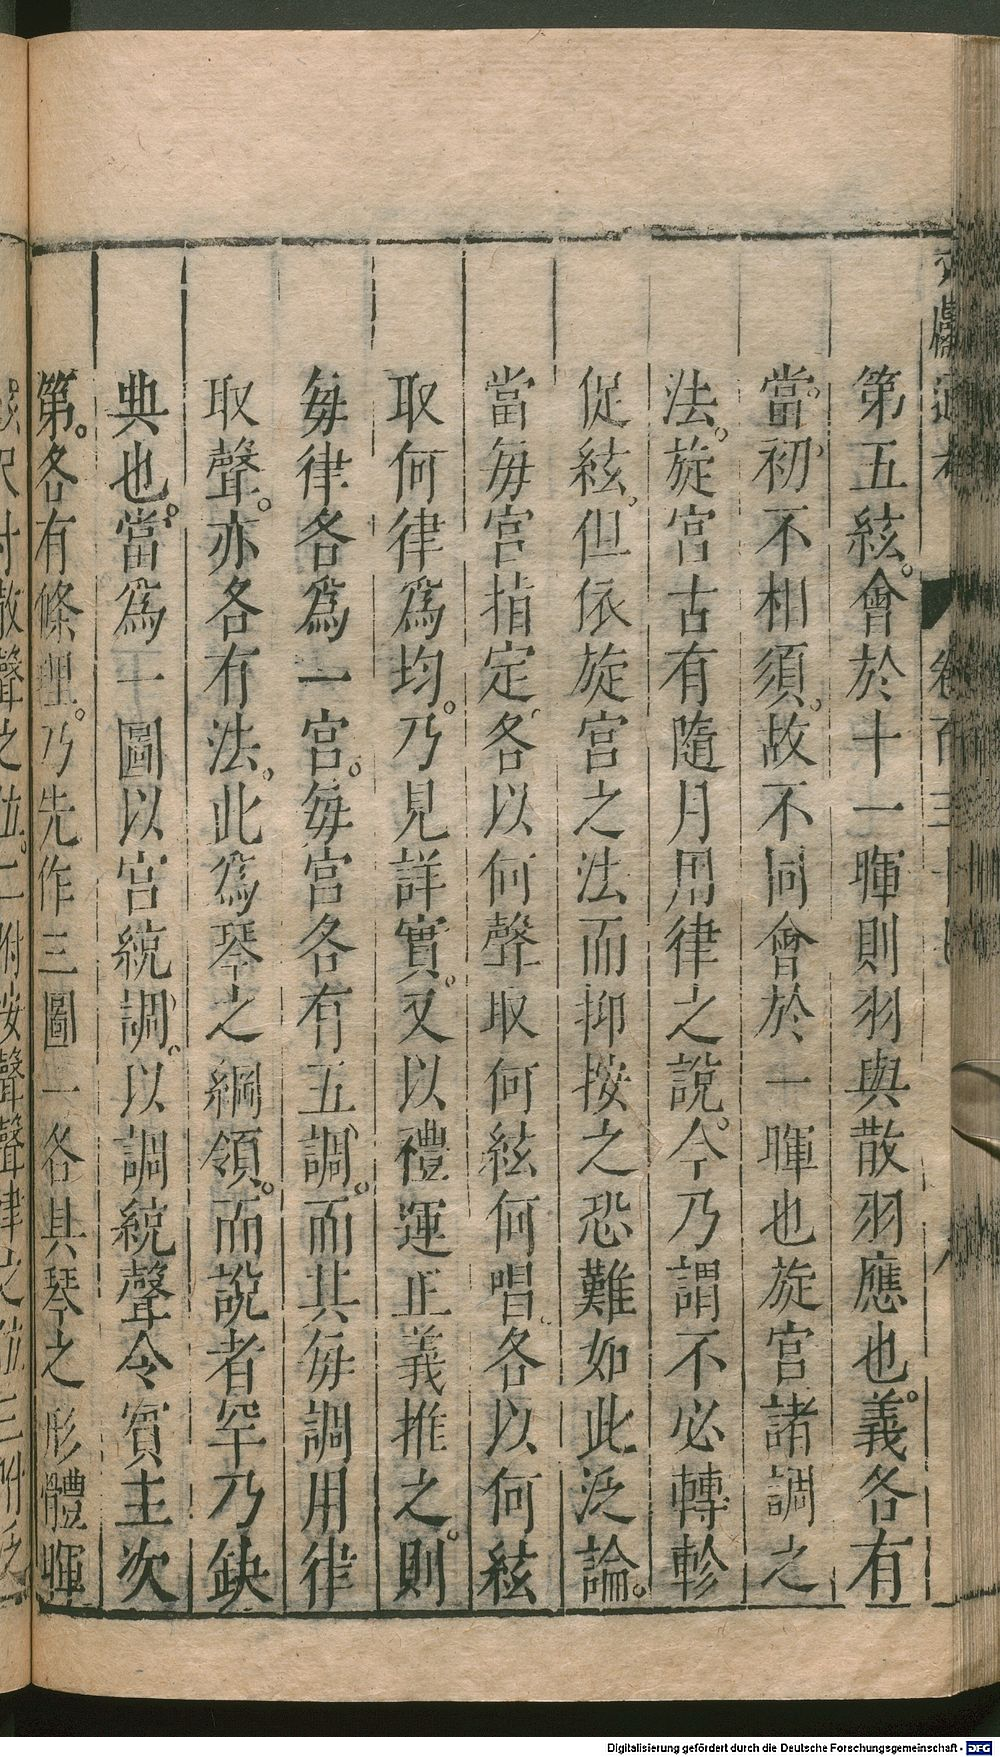 第五絃。會於十一暉則羽與散羽應也。義各有
當。初不相須。故不同會於一暉也旋宮諸調之
法。旋宮古有隨月用律之說。今乃謂不必轉軫
促絃。但依旋宮之法而抑按之恐難如此泛論。
當每宮指定。各以何聲取何絃何唱。各以何絃
取何律爲均。乃見詳實。又以禮運正義推之。則
每律各爲一宮。每宮各有五調。而其每調用律
取聲。亦各有法。此爲琴之綱領。而說者罕乃缺
典也。當爲一圖以宮統調。以調統聲令賓主次
第。各有條理。乃先作三圖一各具琴之形體暉
Digitalisierung gefördert durch die Deutsche Forschungsgemeinschaft - DFG